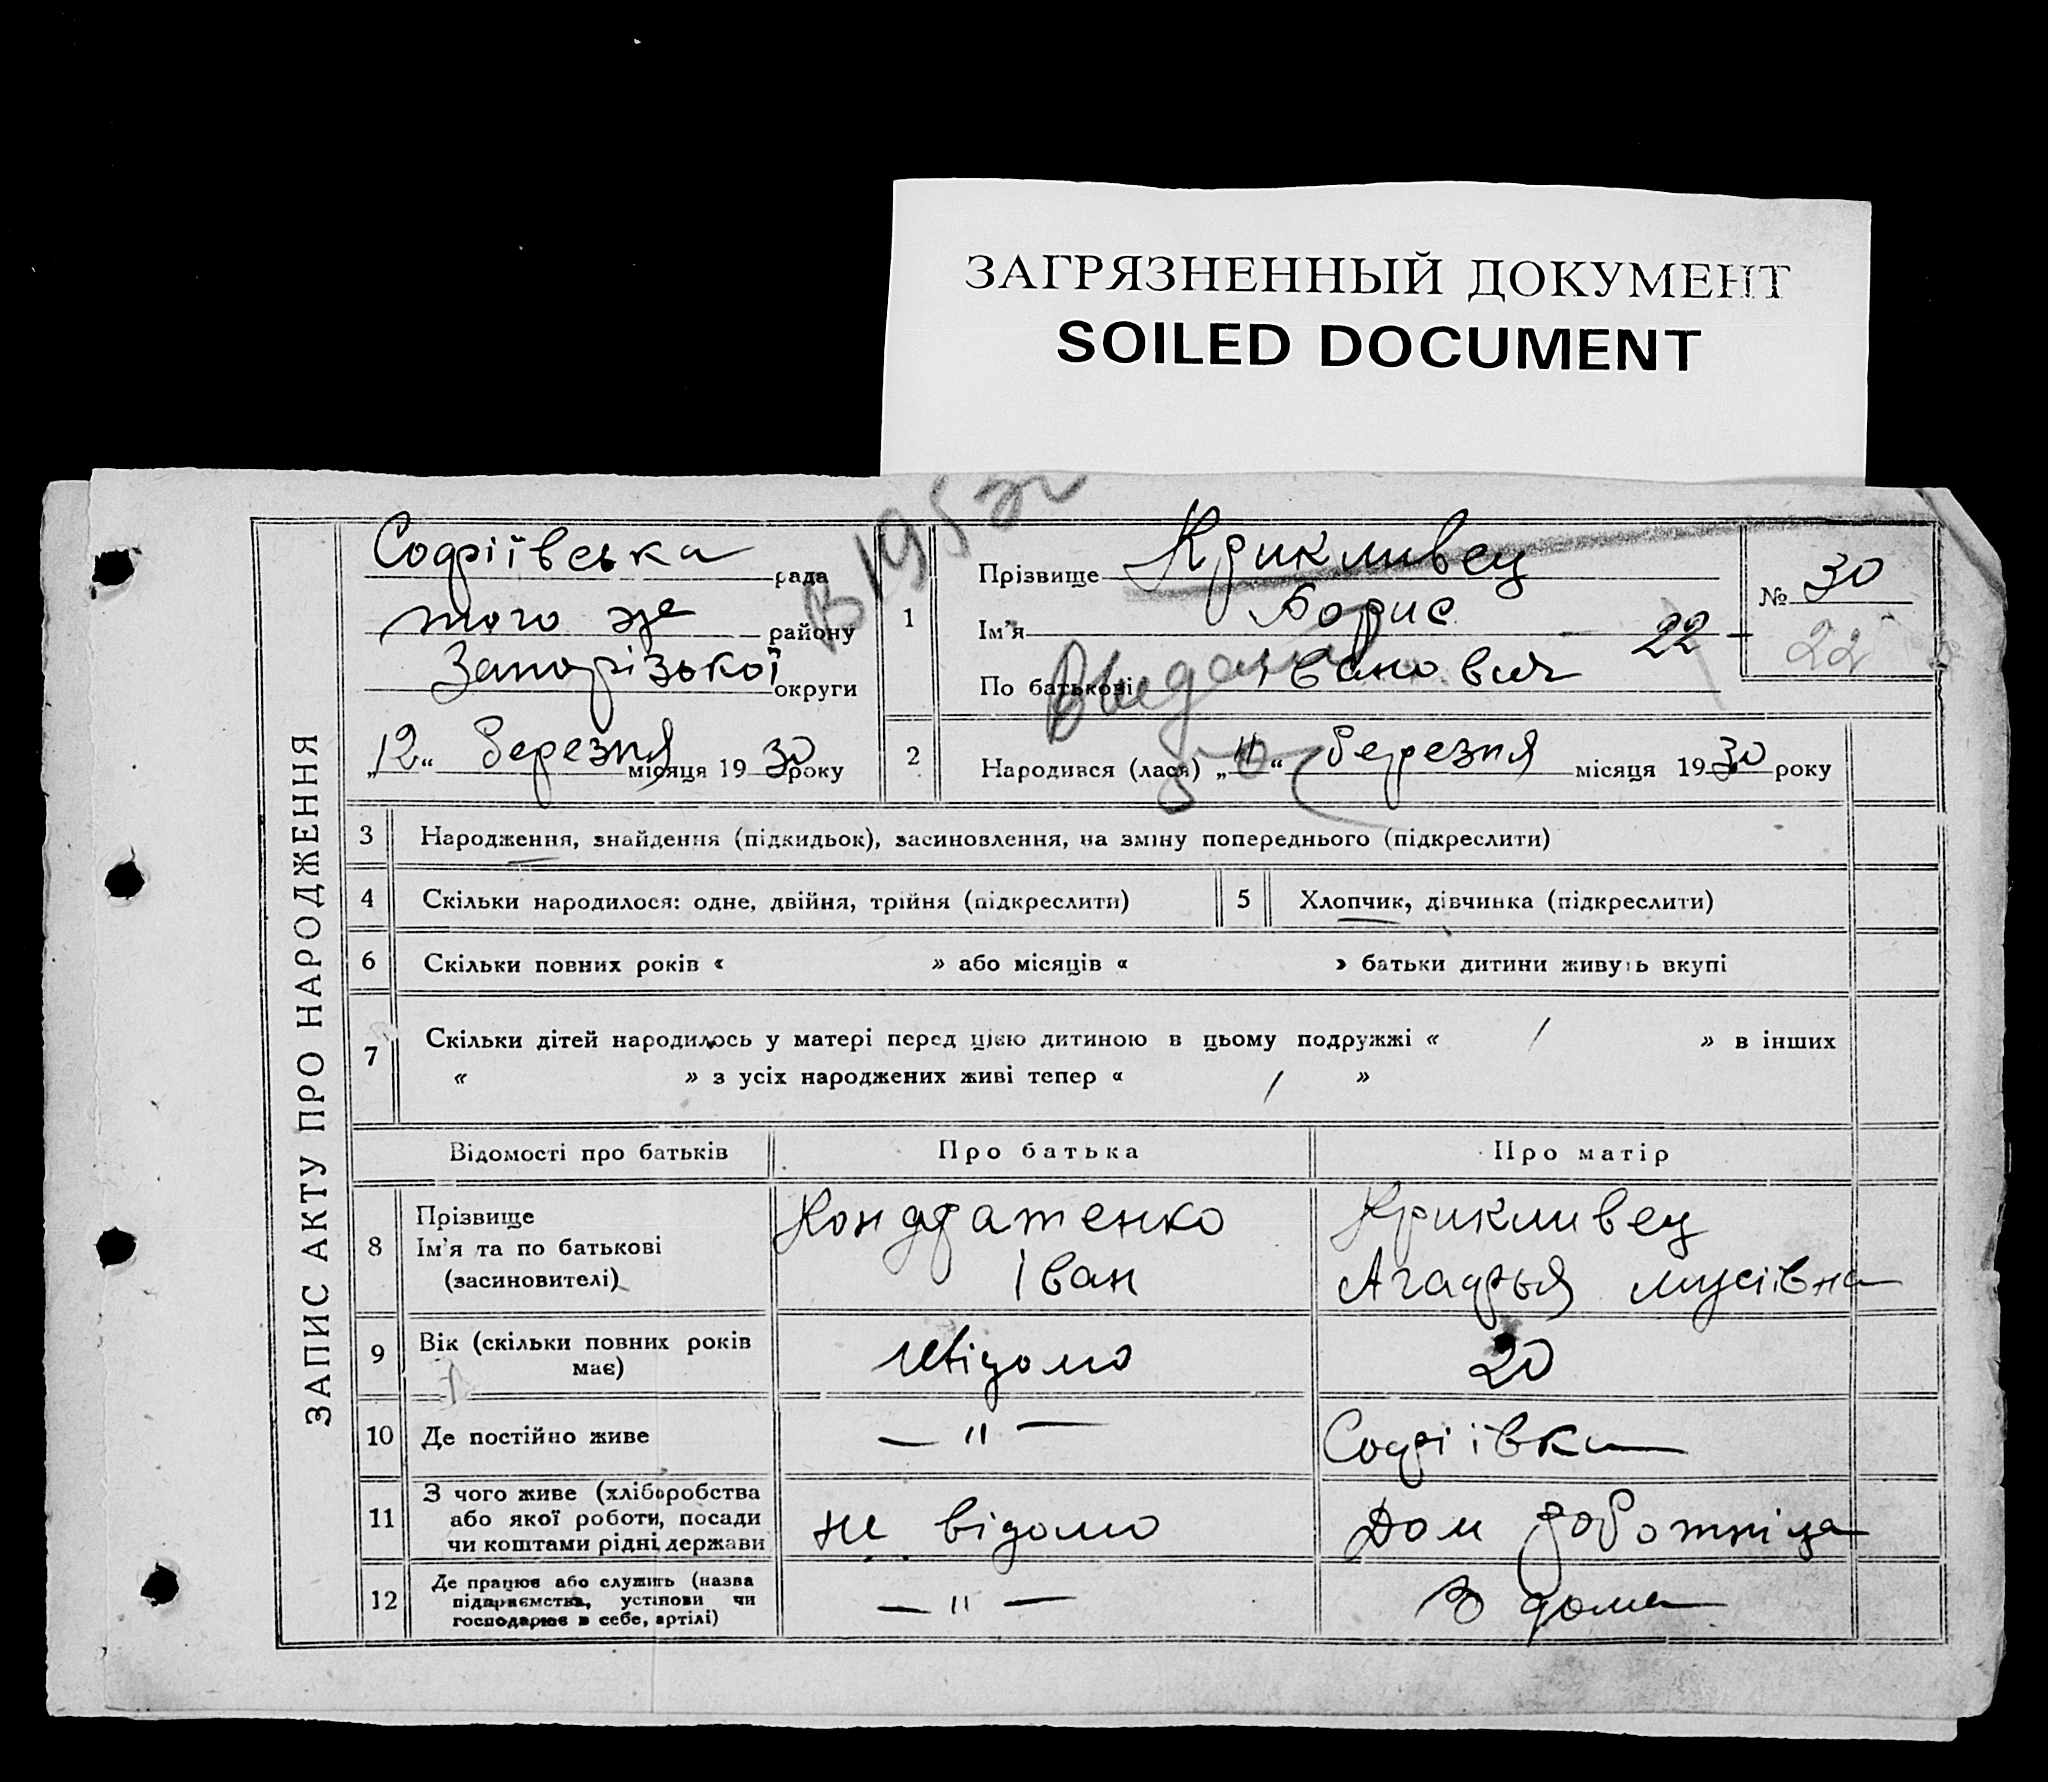 ЗАГРЯЗНЕННЫЙ ДОКУМЕНТ
SOILED DOCUMENT
ЗАПИС АКТУ ПРО НАРОДЖЕННЯ
Софіївська рада
того же району
Запорізької округи
„12“ березня місяця 1930 року
1
Прізвище Крикливец
Ім'я Борис
По батькові Іванович
22
№ 30
22
2
Народився (лася) „11“ березня місяця 1930 року
3 Народження, знайдення (підкидьок), засиновлення, на зміну попереднього (підкреслити)
4 Скільки народилося: одне, двійня, трійня (підкреслити)
5 Хлопчик, дівчинка (підкреслити)
6 Скільки повних років « » або місяців « » батьки дитини живуть вкупі
7 Скільки дітей народилось у матері перед цією дитиною в цьому подружжі « / » в інших
« » з усіх народжених живі тепер « / »
Відомості про батьків Про батька Про матір
8 Прізвище Кондратенко Крикливец
Ім'я та по батькові Іван Агафья Мусіівна
(засиновителі)
9 Вік (скільки повних років має) невідомо 20
10 Де постійно живе — " — Софіївка
11 З чого живе (хліборобства
або якої роботи, посади
чи коштами рідні, держави не відомо Дом работніца
12 Де працює або служить (назва
підприємства, установи чи
господарює в себе, артілі) — " — В дома